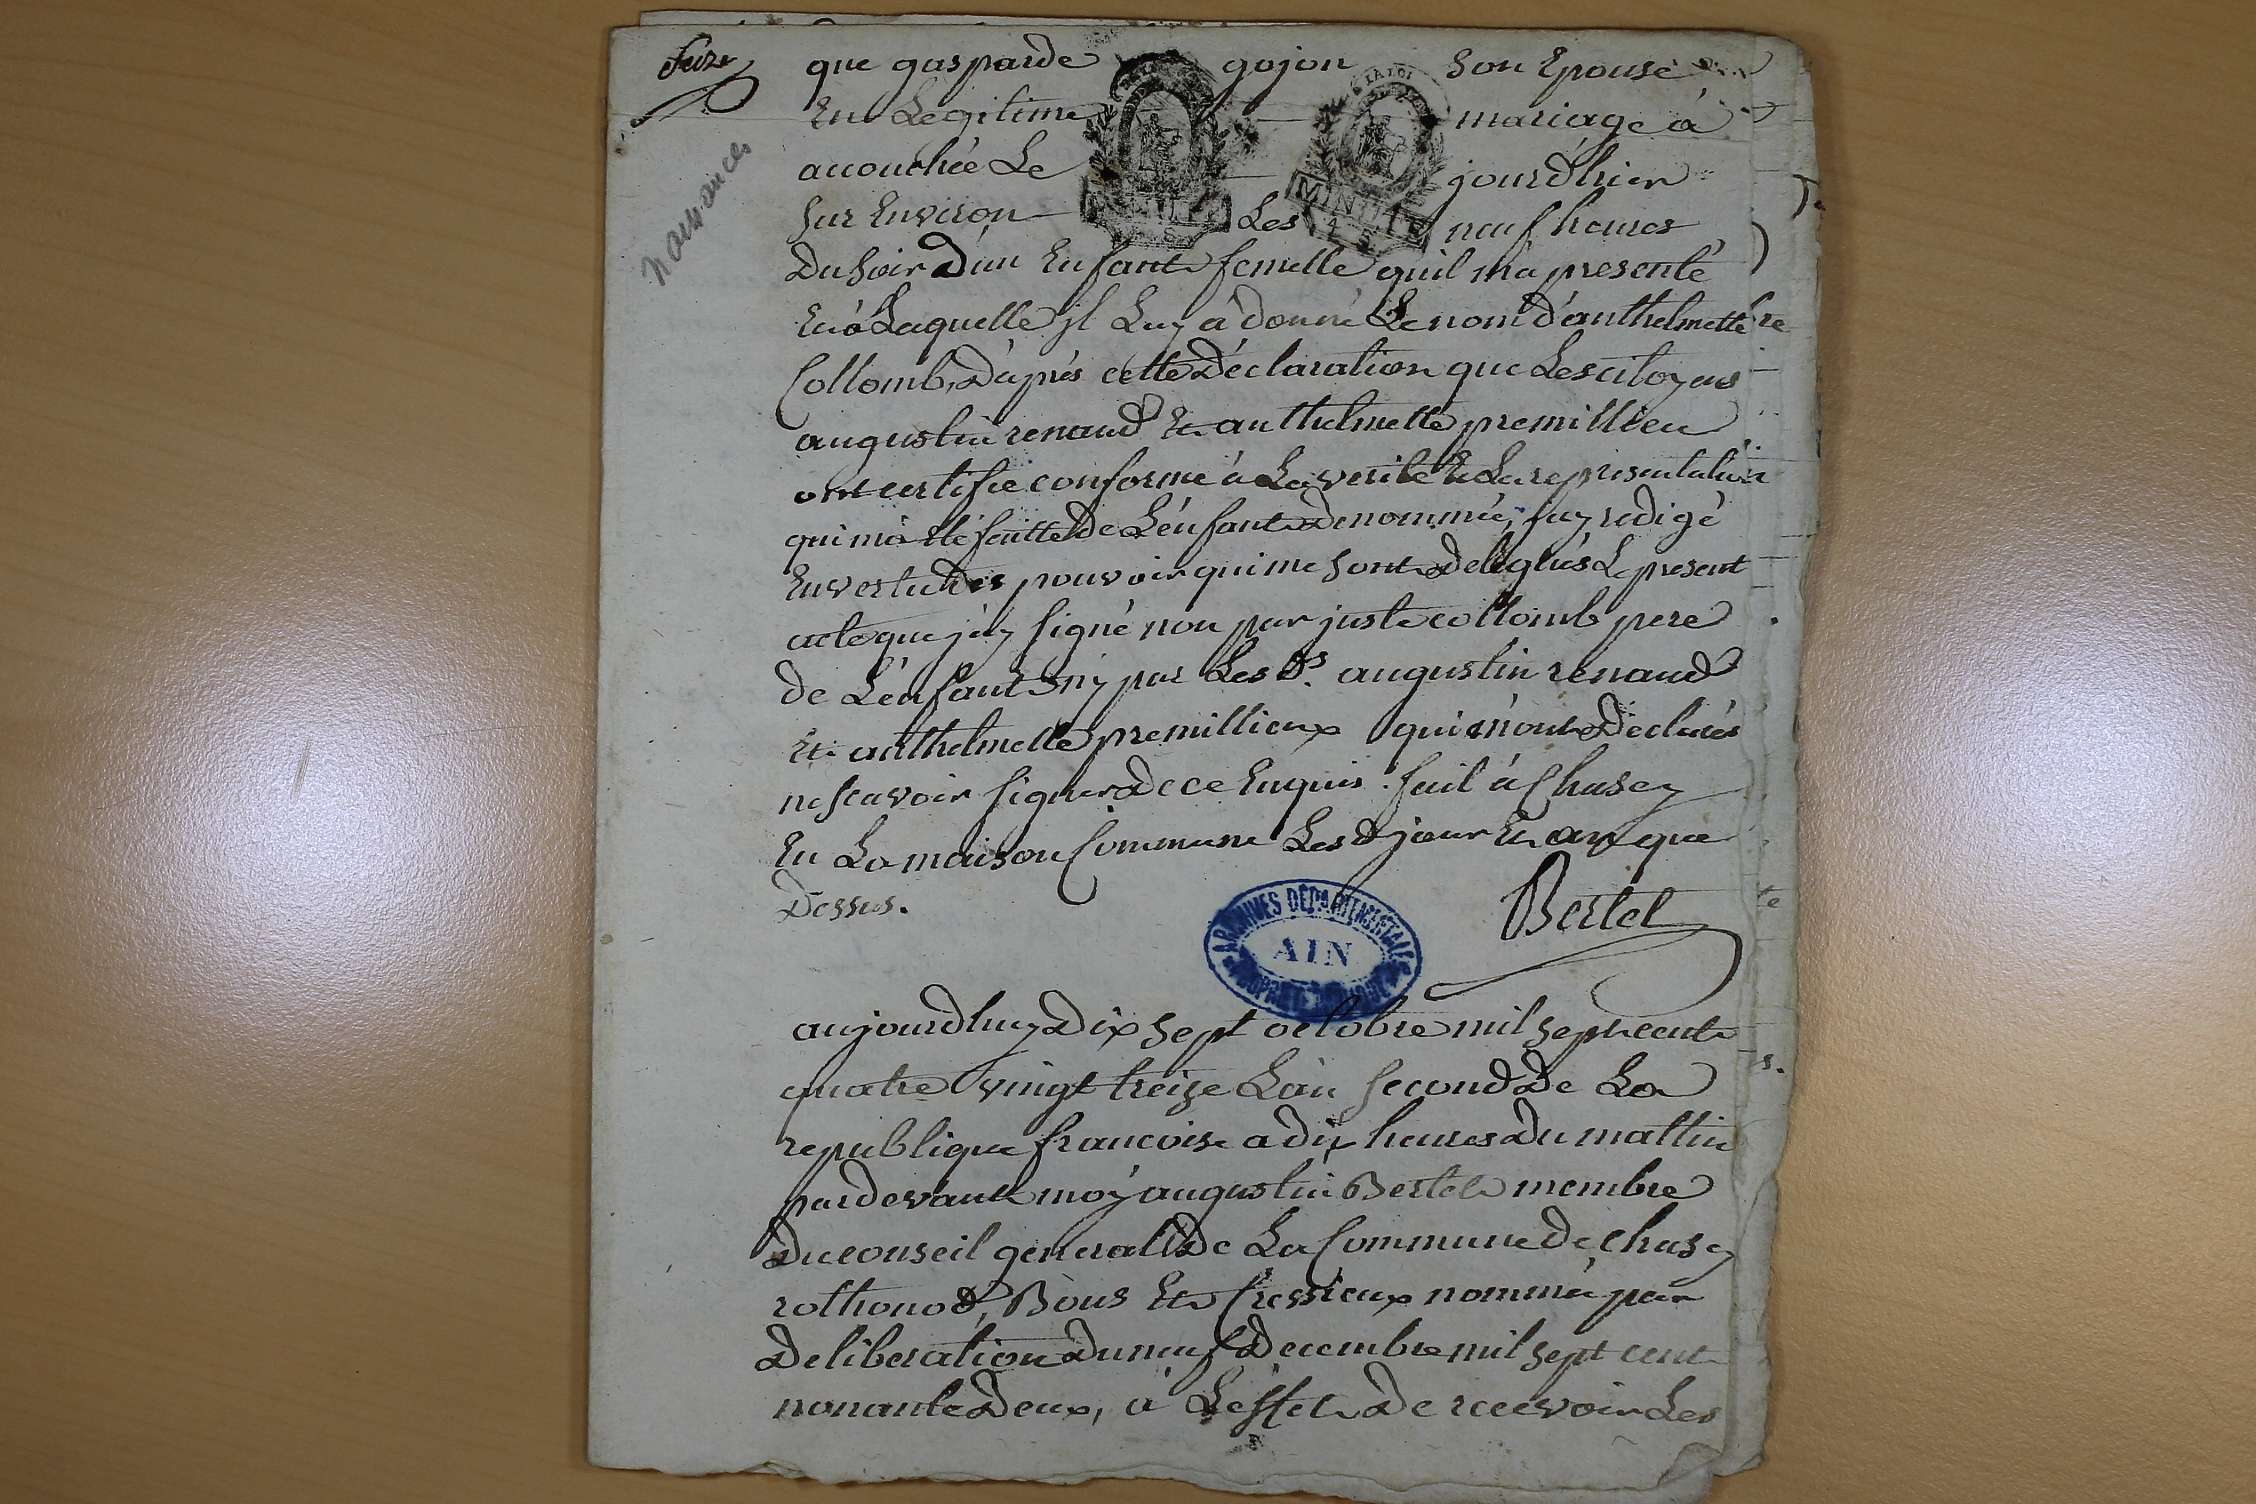 Seize
naissances
que gasparde gojon son Epouse
En Legitime mariage à
accouchée Le jourd'hier
sur Environ Les neuf heures
Du soir D'un Enfant femelle qu'il m'a presenté
Et à Laquelle il Luy à donné Le nom d'anthelmette
Collomb, D'après cette Déclaration que Les citoyens
augustin renaud Et anthelmette premillieu
ont certifie conforme à La verité Et La representation
qui m'a été faitte De L'enfant Denommée, j'ay redigé
En vertu Des pouvoir qui me sont Delegués Le present
acte que j'ay signé non par juste collomb pere
de L'enfant ny par Les ds. augustin renaud
Et anthelmette premillieux qui m'ont Declarés
ne scavoir signer De ce Enquis. fait à Chasey
En La maison Commune Les d jour Et an que
Dessus.
Bertet
ARCHIVES DÉPARTEMENTALES
AIN
MINUTE
aujourdhuy Dix sept octobre mil sept cent
quatre vingt treize L'an second De La
republique francoise a dix heures Du mattin
pardevant moy augustin Bertet membre
Du conseil general De La Commune De Chasey
rothonod, Bous Et Cressieux nommé par
Deliberation Du neuf Decembre mil sept cent
nonante Deux, à L'effet De recevoir Les